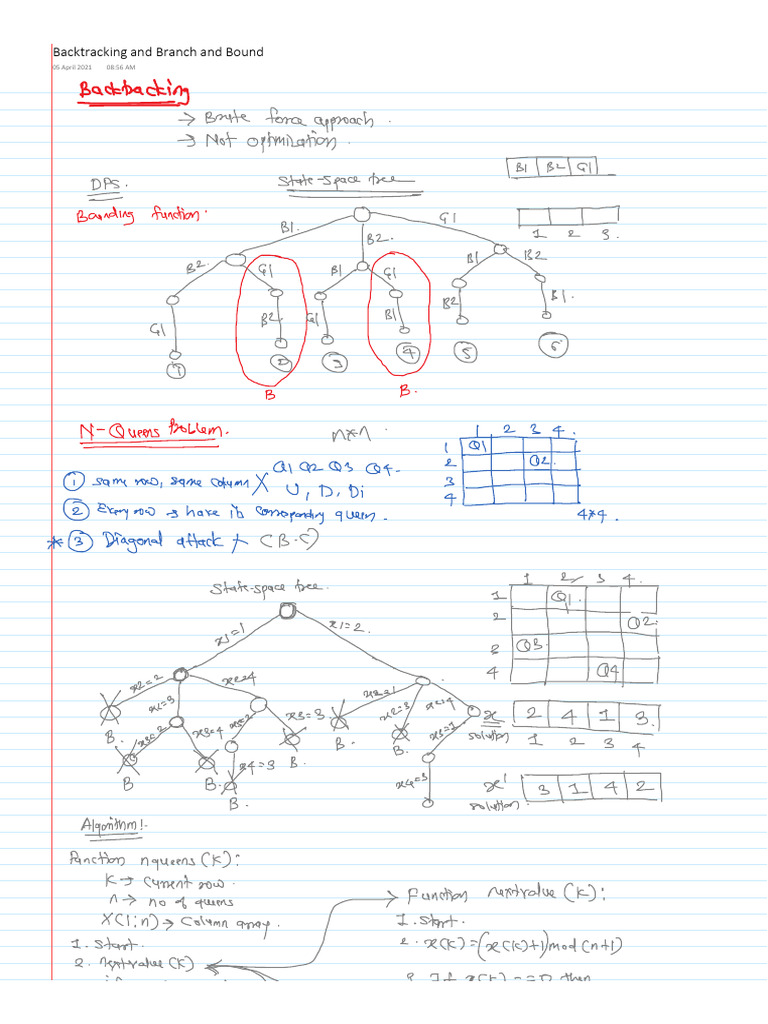 Backtracking and Branch and Bound
05 April 2021 08:56 AM
Backtracking
→ Brute force approach.
→ Not optimization.
B1 B2 G1
DFS. State-space tree
Bounding function.
1 2 3.
B1. B2. G1
B2. G1 B1 G1 B1 B2
G1 B2. G1 B1 B2 B1.
1 2 3 4 5 6
B B.
N-Queens Problem. n*n.
1 2 3 4.
1 Q1
2 Q2.
3
4
4*4.
Q1 Q2 Q3 Q4.
① same row, same column X U, D, Di
② Every row → have its corresponding queen.
* ③ Diagonal attack X (B.C)
State-space tree.
1 2 3 4.
1 Q1.
2 Q2.
3 Q3
4 Q4
x1=1 x1=2.
x2=2 x2=3 x2=4 x2=1 x2=3 x2=4
B. x3=2 x3=4 x3=2 x3=3 B. B. x3=1
B B. x4=3 B. x4=3
B.
x 2 4 1 3.
solution 1 2 3 4
x' 3 1 4 2
solution.
Algorithm!.
Function nqueens(K):
K → current row.
n → no of queens
X(1:n) → Column array.
1. Start.
2. nextvalue(K)
→ Function nextvalue(K):
1. Start.
2. x(k) = (x(k)+1) mod (n+1)
If x(k) == 0 then